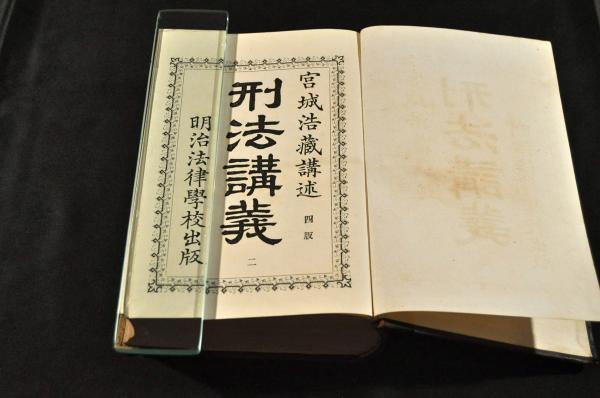 宮城浩藏講述 四版
刑法講義 二
明治法律學校出版